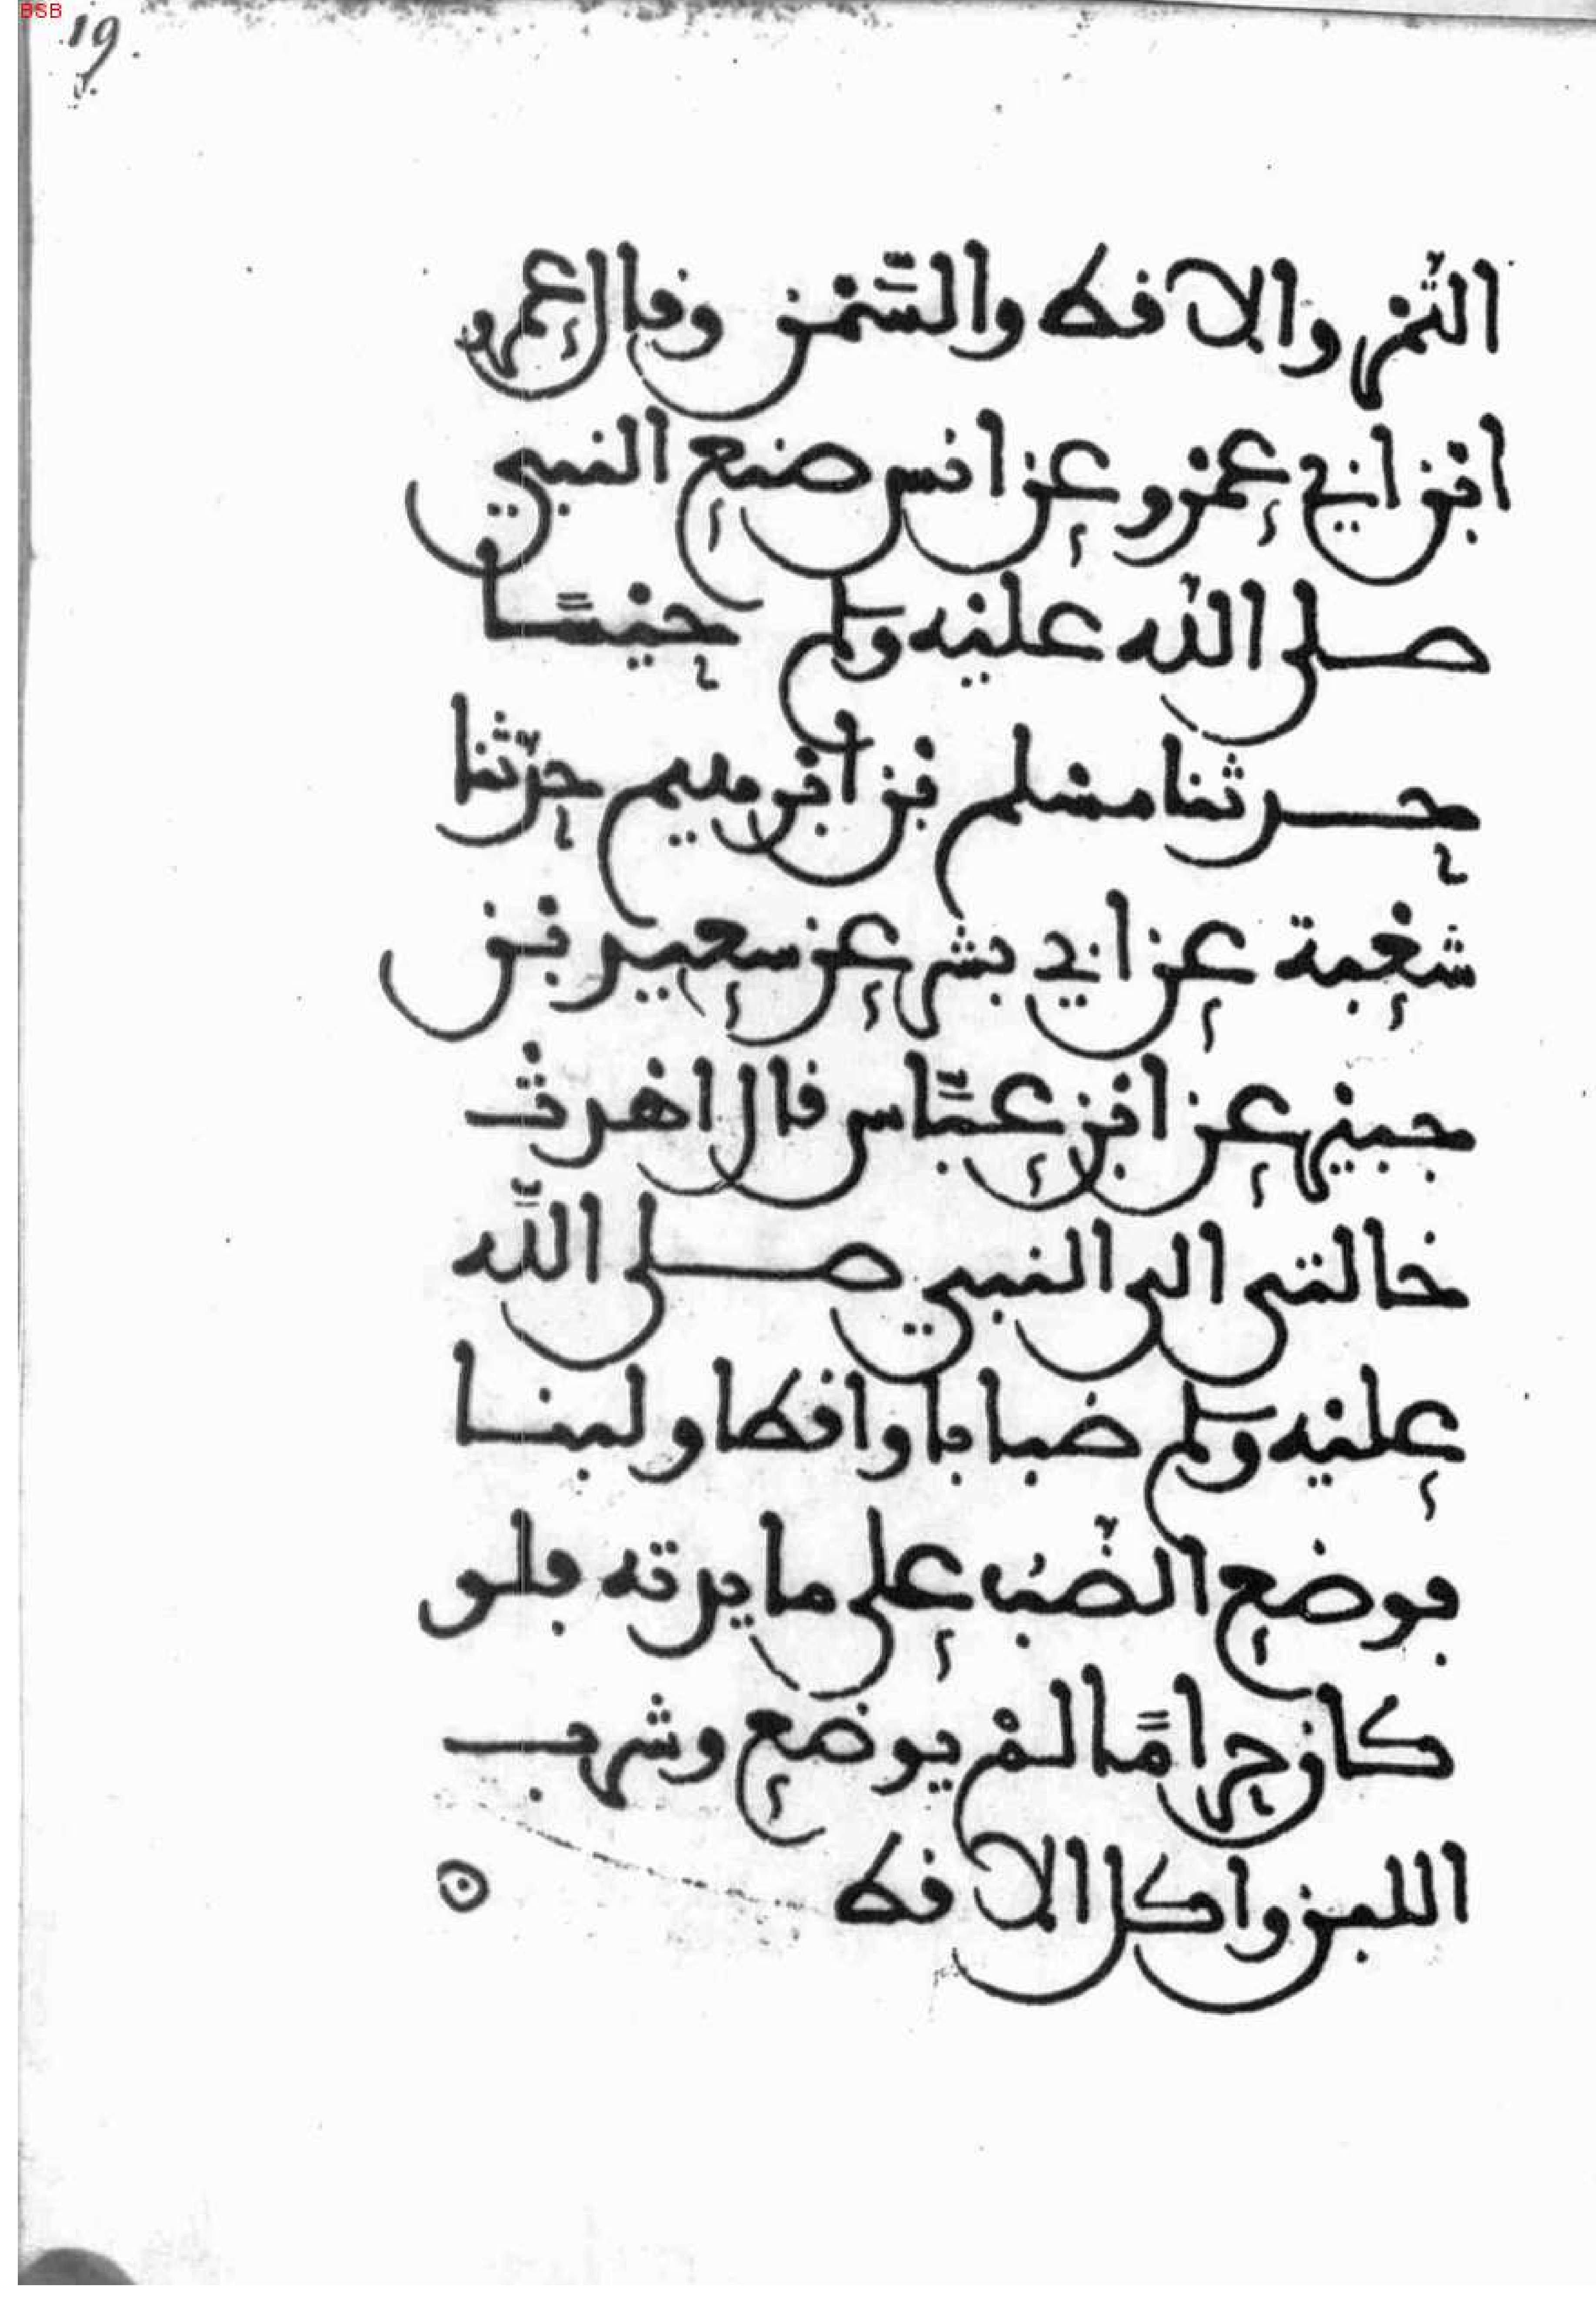 BSB
19.
التّمر والاقط والسَّمْن وقال عمرو
ابن ابي عمرو عن انس صنع النبي
صلى الله عليه وسلم حيْسًا
حدثنا مسلم بن ابرهيم حدّثنا
شعبة عن ابي بشر عن سعيد بن
جبير عن ابن عبَّاس قال اهدت
خالتى الى النبي صلى اللَّه
عليه وسلم ضبابا واقطا ولبنا
فوضع الضّب على مايدته فلو
كان حرامًا لمْ يوضع وشرب
اللبن واكل الاقط